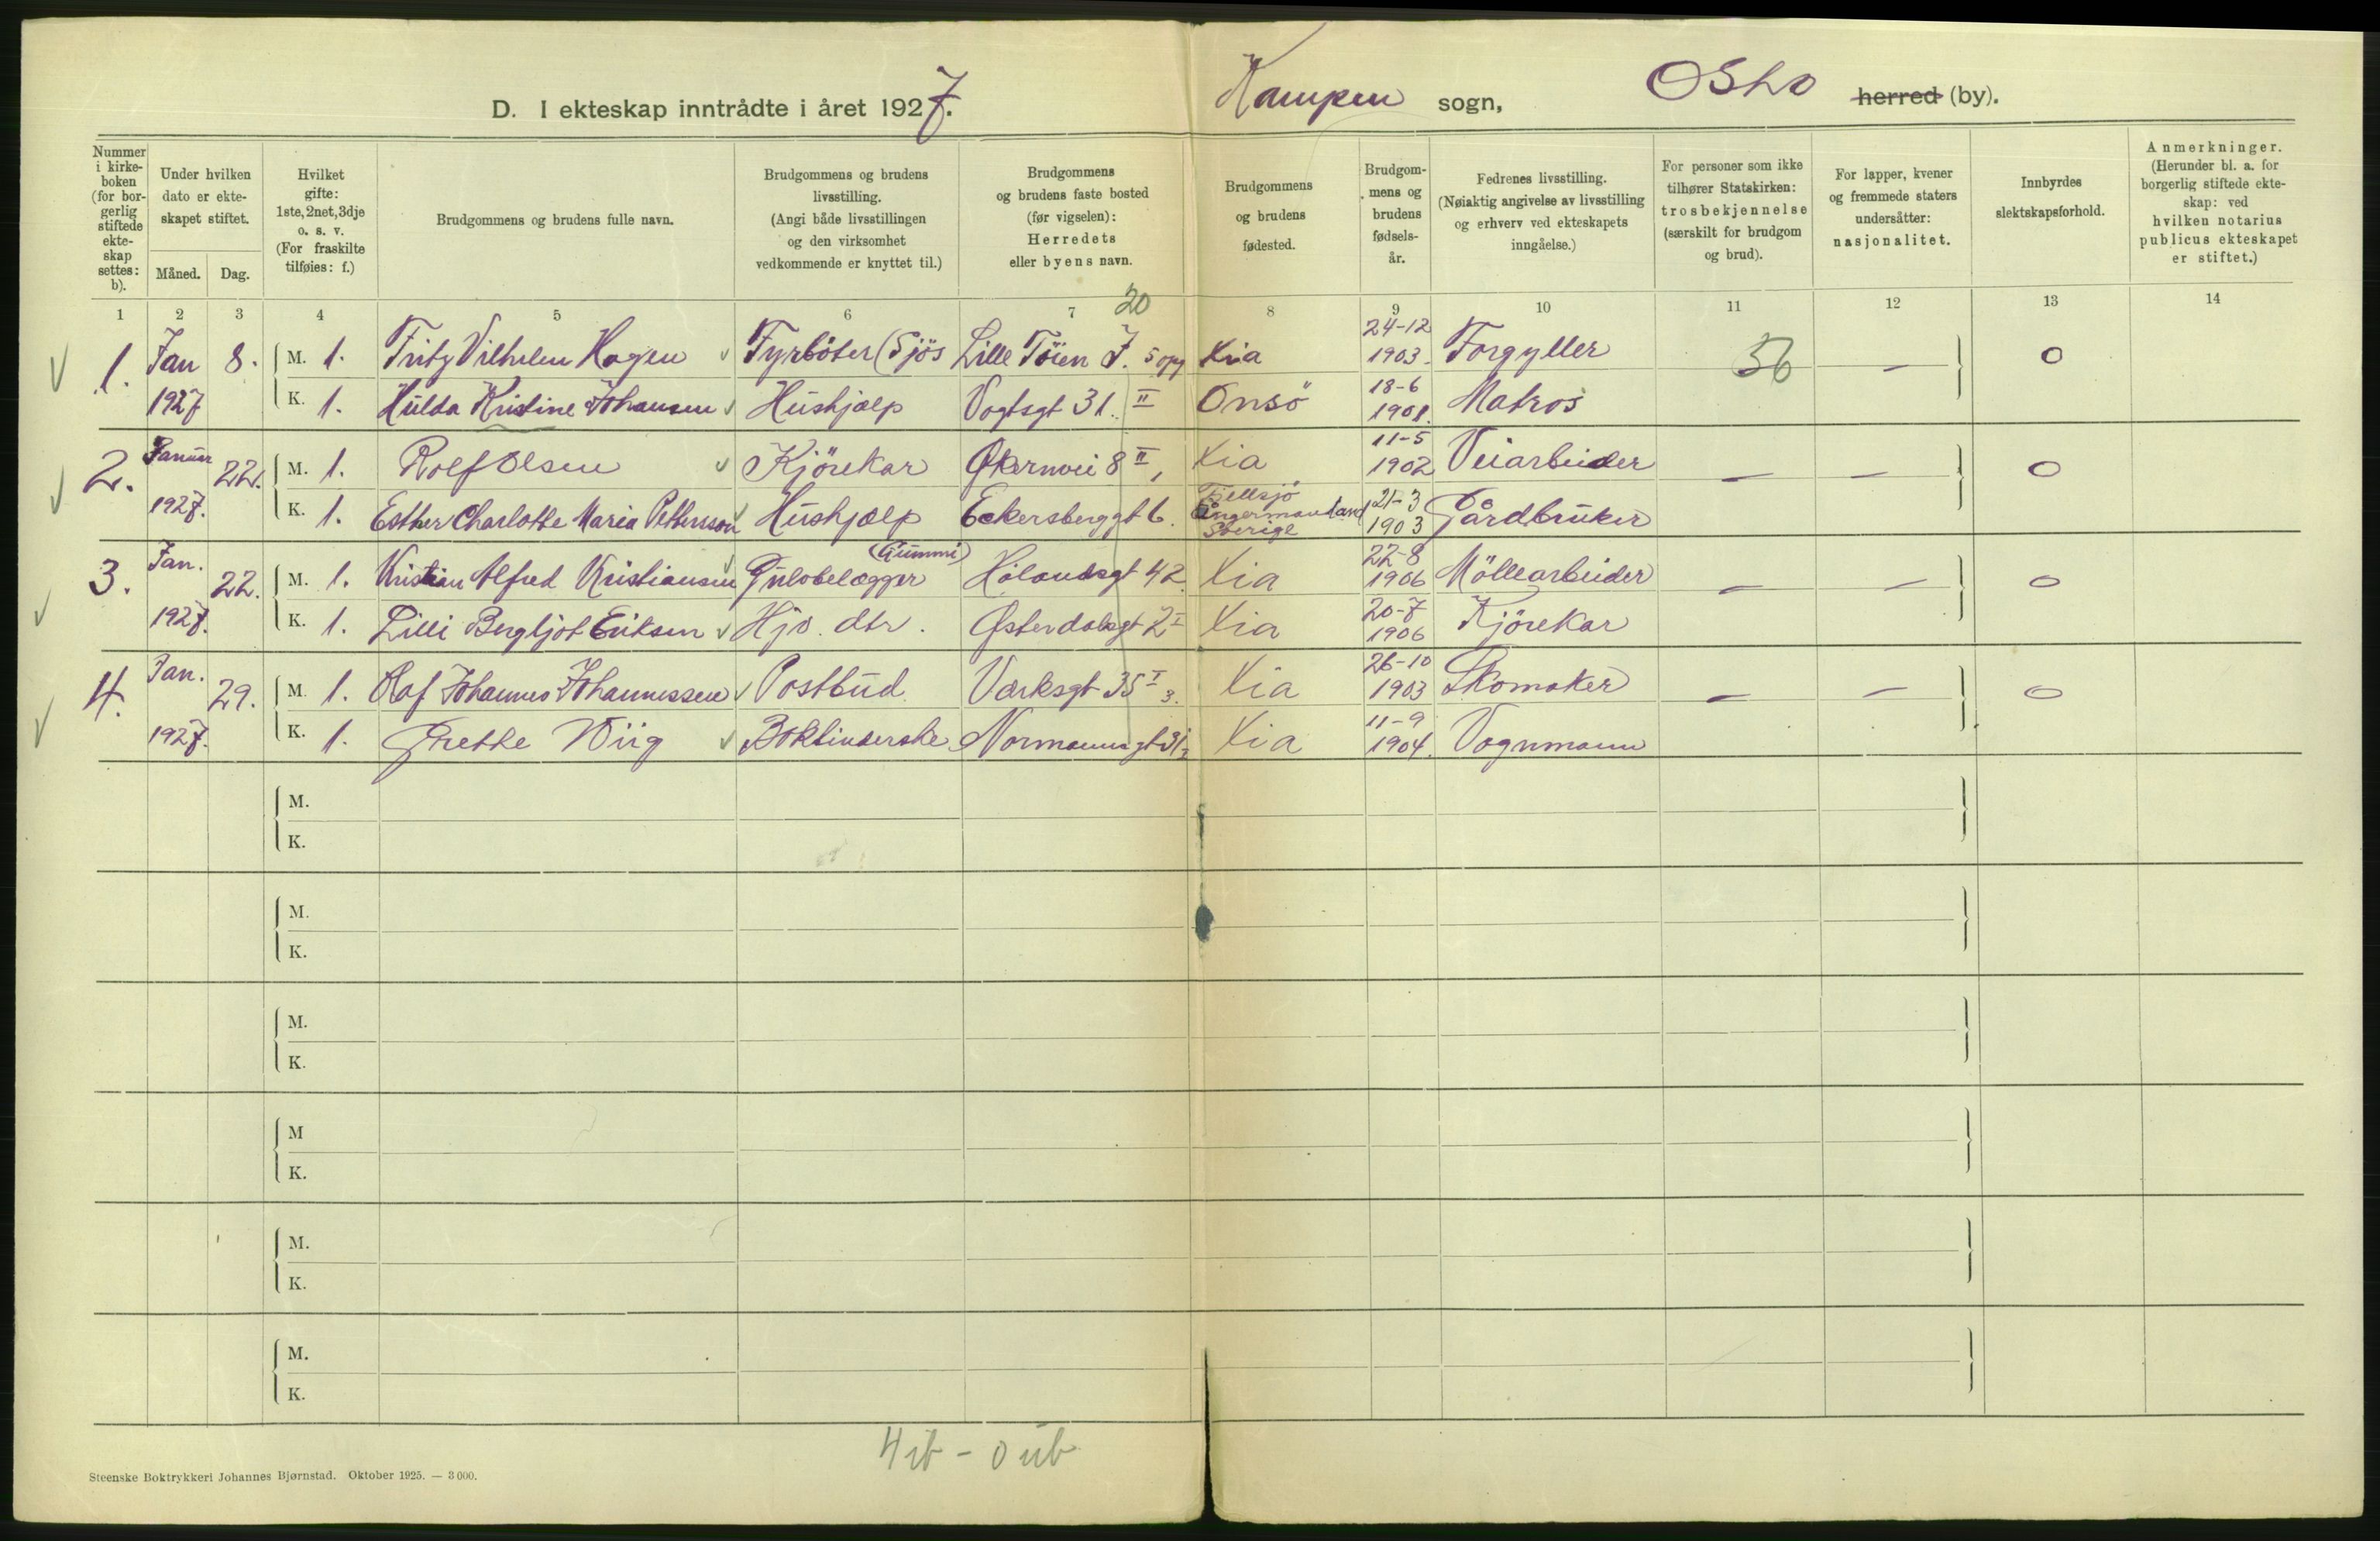 D. I ekteskap inntrådte i året 1927. Kampen sogn, Oslo herred (by).
Nummer i kirkeboken (for borgerlig stiftede ekteskap settes: b).
Under hvilken dato er ekteskapet stiftet.
Måned. Dag.
Hvilket gifte: 1ste, 2net, 3dje o. s. v. (For fraskilte tilføies: f.)
Brudgommens og brudens fulle navn.
Brudgommens og brudens livsstilling. (Angi både livsstillingen og den virksomhet vedkommende er knyttet til.)
Brudgommens og brudens faste bosted (før vigselen): Herredets eller byens navn.
Brudgommens og brudens fødested.
Brudgommens og brudens fødselsår.
Fedrenes livsstilling. (Nøiaktig angivelse av livsstilling og erhverv ved ekteskapets inngåelse.)
For personer som ikke tilhører Statskirken: trosbekjennelse (særskilt for brudgom og brud).
For lapper, kvener og fremmede staters undersåtter: nasjonalitet.
Innbyrdes slektskapsforhold.
Anmerkninger. (Herunder bl. a. for borgerlig stiftede ekteskap: ved hvilken notarius publicus ekteskapet er stiftet.)
1 2 3 4 5 6 7 20 8 9 10 11 12 13 14
1. Jan 8. M. 1. Fritz Vilhelm Hagen Fyrböter (Sjös Lille Töien 7. 5 opg Kia 24-12 1903. Forgyller 56 — 0
1927 K. 1. Hulda Kristine Johansen Hushjælp Vogtsgt 31. II Onsö 18-6 1901. Matros
2. Januar 22. M. 1. Rolf Olsen Kjörekar Økernvei 8 II, Kia 11-5 1902 Veiarbeider — — 0
1927. K. 1. Esther Charlotte Maria Pettersson Hushjælp Eckersberggt 6. Fjellsjö Ångermanland Sverige 21-3 1903 Gårdbruker
3. Jan. 22. M. 1. Kristian Alfred Kristiansen Gulvbelægger (Gummi) Hölandsgt 42 Kia 22-8 1906 Möllearbeider — — 0
1927. K. 1. Lilli Bergljot Eriksen Hjv. dtr. Østerdalsgt 2 I Kia 20-7 1906 Kjörekar
4. Jan. 29. M. 1. Olaf Johannes Johannessen Postbud Værksgt 35 I 3. Kia 26-10 1903 Skomaker — — 0
1927. K. 1. Grethe Wiig Bokbinderske Normannsgt 31 Kia 11-9 1904. Vognmann
M.
K.
M.
K.
M.
K.
M
K.
M.
K.
M.
K.
4 ib - 0 ub
Steenske Boktrykkeri Johannes Bjørnstad. Oktober 1925. — 3 000.